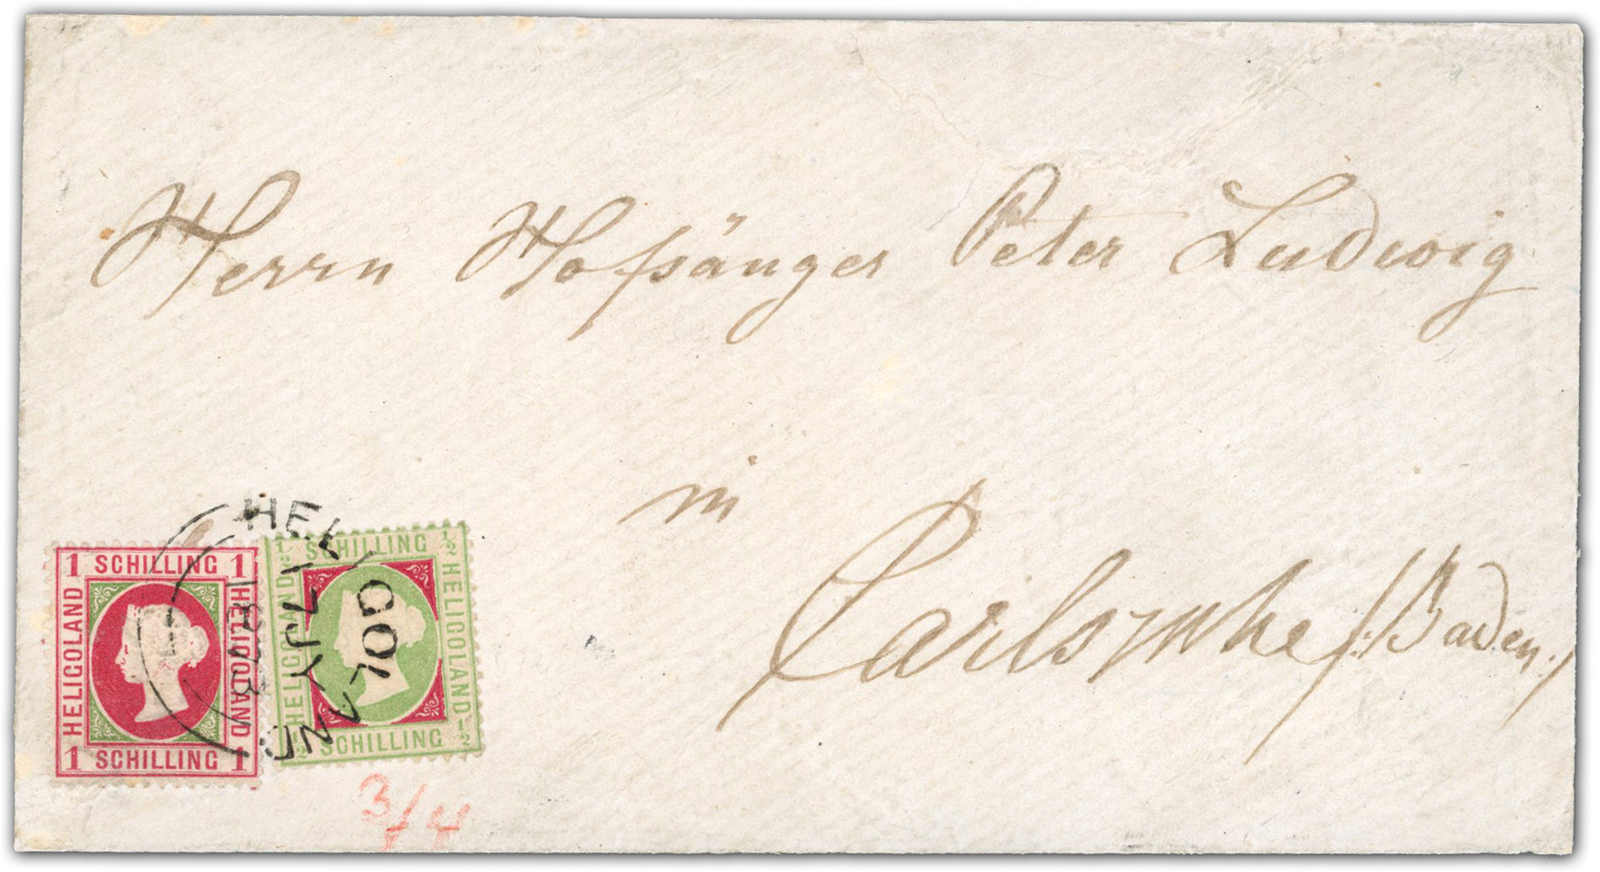 Herrn Hofsänger Peter Ludwig
in
Carlsruhe /:Baden:/
1 SCHILLING 1
HELIGOLAND
HELIGOLAND
1 SCHILLING 1
½ SCHILLING ½
HELIGOLAND
HELIGOLAND
½ SCHILLING ½
HELIGOLAND
JY
187
3/4